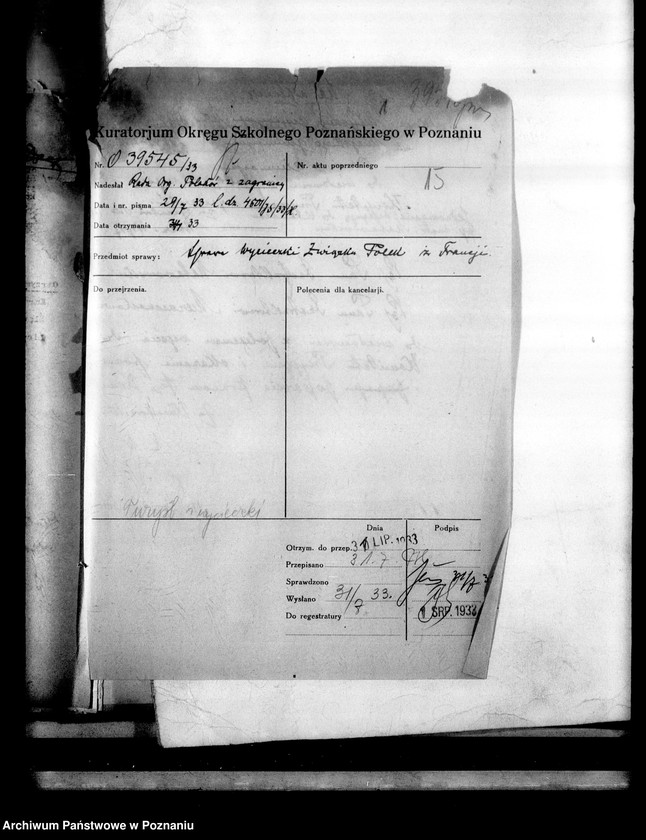 Kuratorjum Okręgu Szkolnego Poznańskiego w Poznaniu
Nr. O 39545/33
Nr. aktu poprzedniego
15
Nadesłał Rada Org. Polaków z zagranicy
Data i nr. pisma 29/7 33 l. dz.
Data otrzymania 33
Przedmiot sprawy: Sprawa wycieczki Związku Polek z Francji.
Do przejrzenia.
Polecenia dla kancelarji.
Dnia
Podpis
Otrzym. do przep. 31 LIP. 1933
Przepisano 31.7.
Sprawdzono
Wysłano 31/7 33.
Do regestratury
1 SRP. 1933
Archiwum Państwowe w Poznaniu